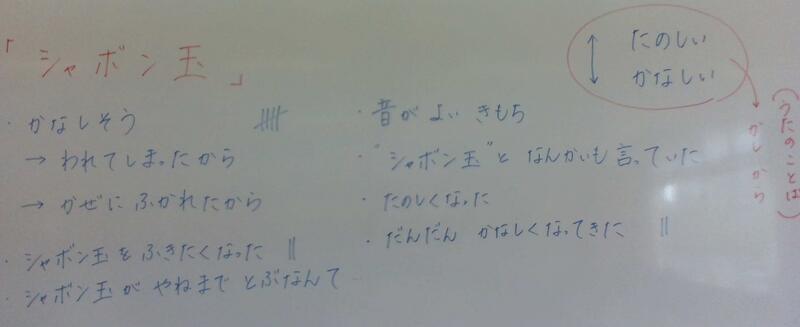 「シャボン玉」
・かなしそう
→ われてしまったから
→ かぜに ふかれたから
・シャボン玉を ふきたくなった
・シャボン玉が やねまで とぶなんて
・音が よい きもち
・"シャボン玉"と なんかいも 言っていた
・たのしくなった
・だんだん かなしくなってきた
たのしい
かなしい
かしから
(うたのことば)